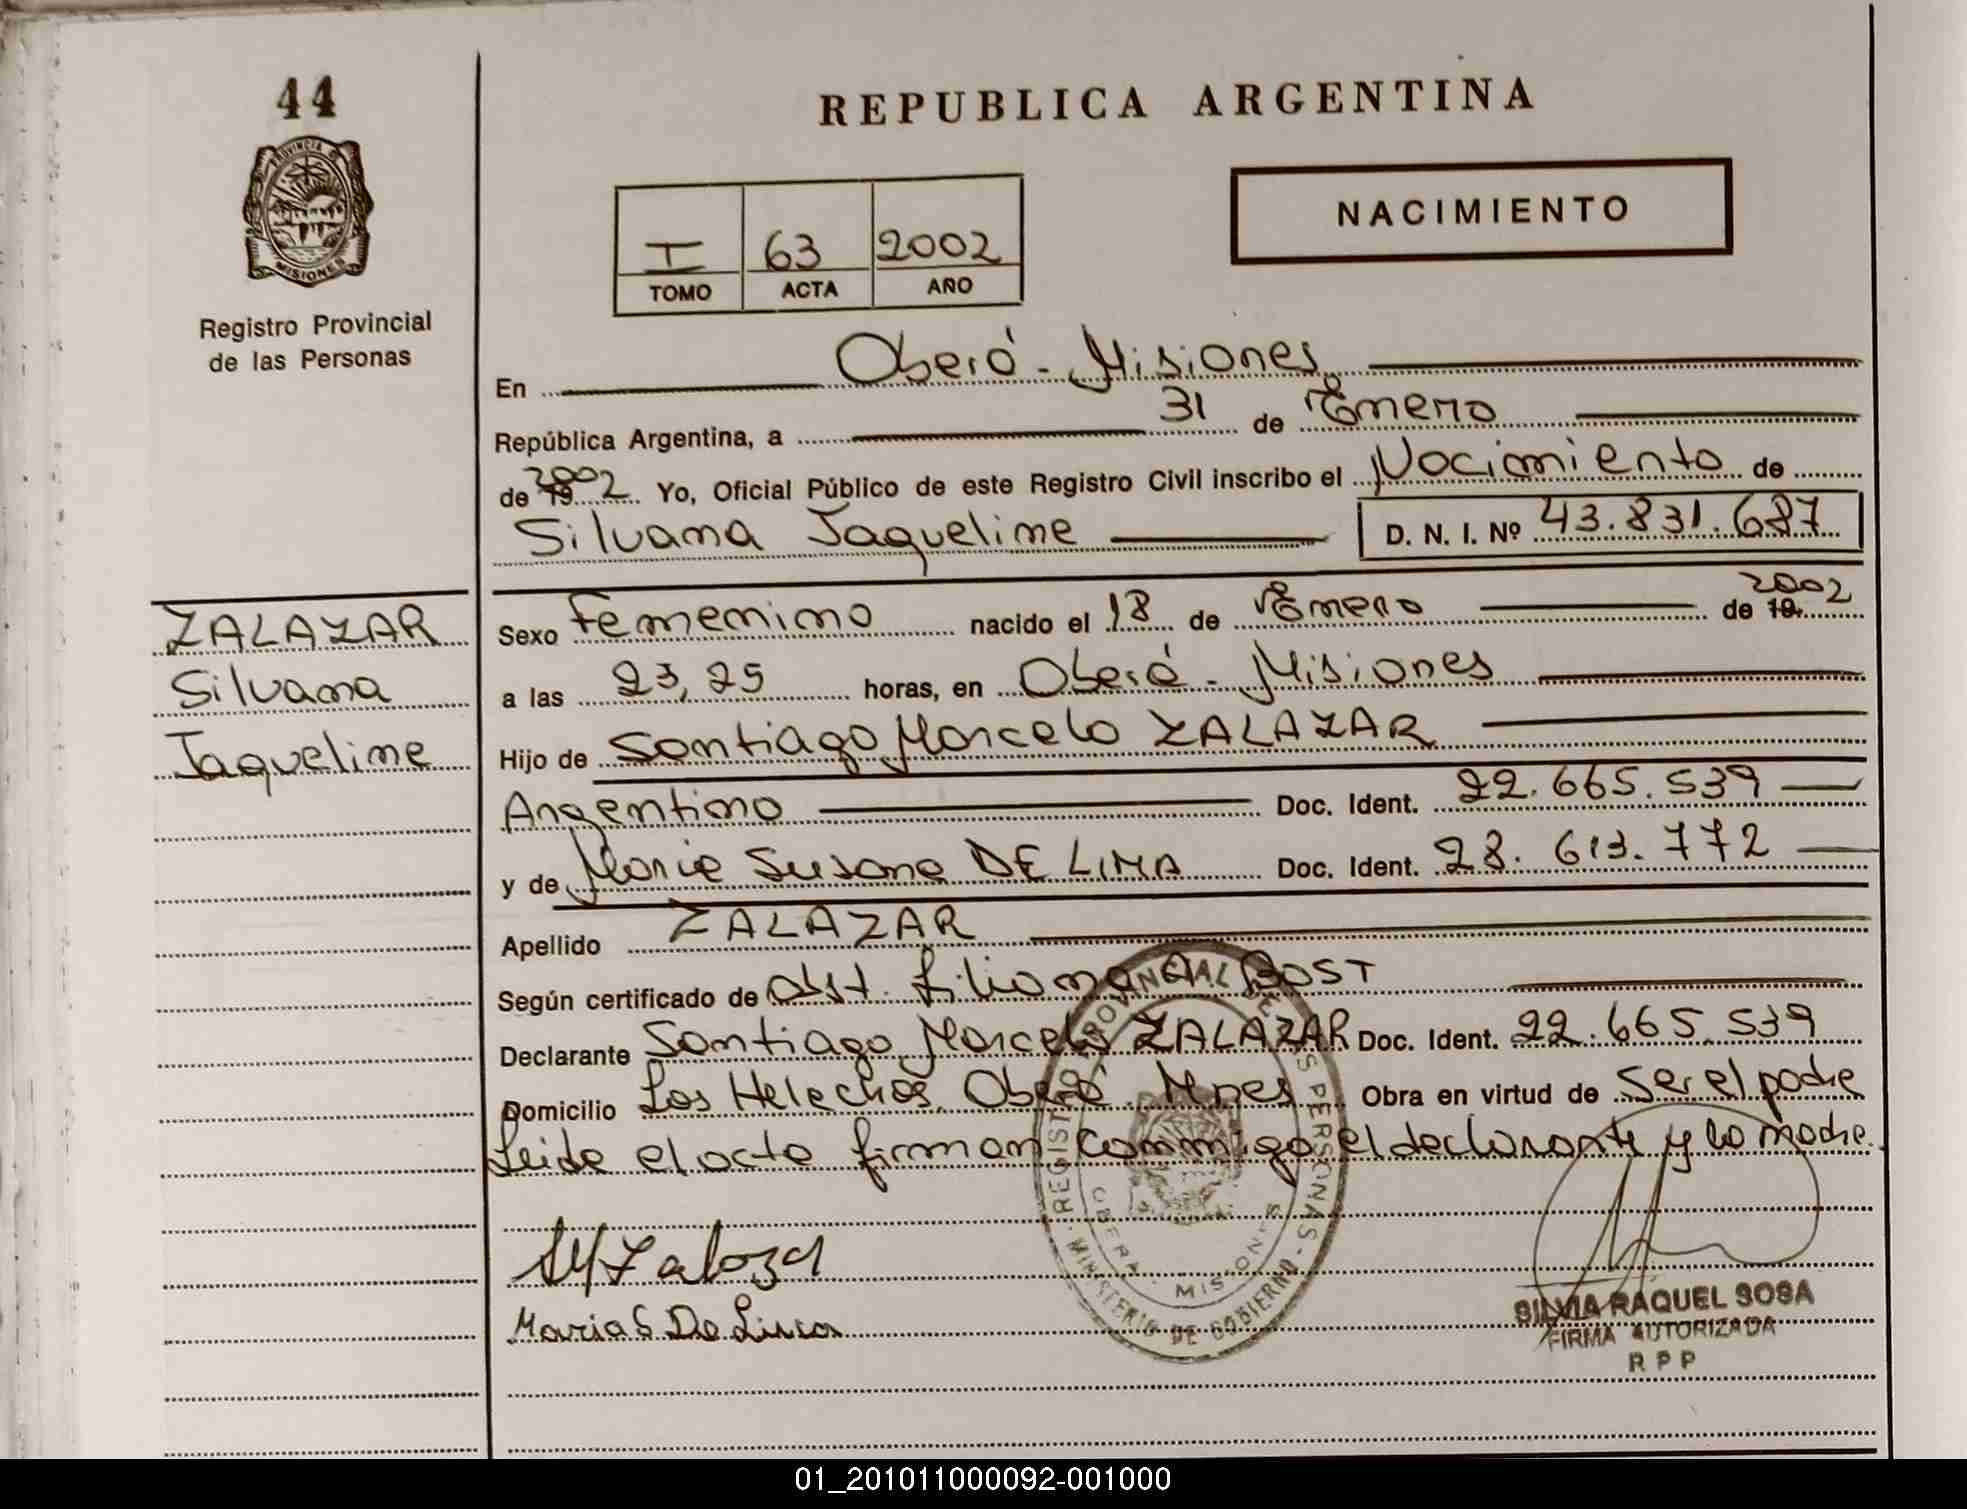 44
PROVINCIA DE
MISIONES
Registro Provincial
de las Personas
ZALAZAR
Silvana
Jaqueline
REPUBLICA ARGENTINA
I 63 2002
TOMO ACTA AÑO
NACIMIENTO
En Oberá - Misiones
República Argentina, a 31 de Enero
de 19 2002 Yo, Oficial Público de este Registro Civil inscribo el Nacimiento de
Silvana Jaqueline D. N. I. Nº 43.831.687
Sexo Femenino nacido el 18 de Enero de 19 2002
a las 23,25 horas, en Oberá - Misiones
Hijo de Santiago Marcelo ZALAZAR
Argentino Doc. Ident. 22.665.539
y de Maria Susana DE LIMA Doc. Ident. 28.613.772
Apellido ZALAZAR
Según certificado de Obst. Filomena BOST
Declarante Santiago Marcelo ZALAZAR Doc. Ident. 22.665.539
Domicilio Los Helechos, Oberá Mnes Obra en virtud de ser el padre
Leida el acta firman conmigo el declarante y la madre.
REGISTRO PROVINCIAL DE LAS PERSONAS - MINISTERIO DE GOBIERNO
OBERA - MISIONES
Maria S De Lima
SILVIA RAQUEL SOSA
FIRMA AUTORIZADA
R P P
01_201011000092-001000